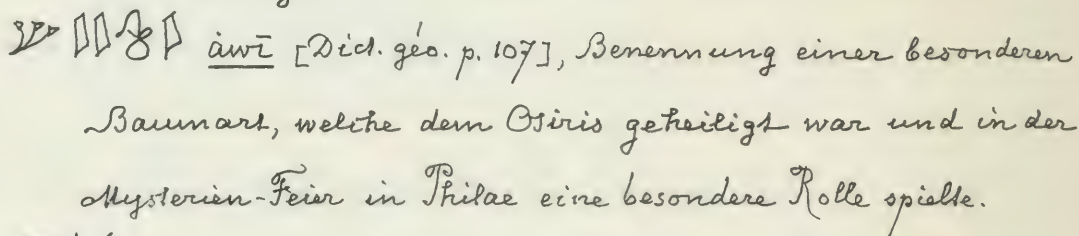 àwī [Dict. géo. p. 107], Benennung einer besonderen
Baumart, welche dem Osiris geheiligt war und in der
Mysterien-Feier in Philae eine besondere Rolle spielte.